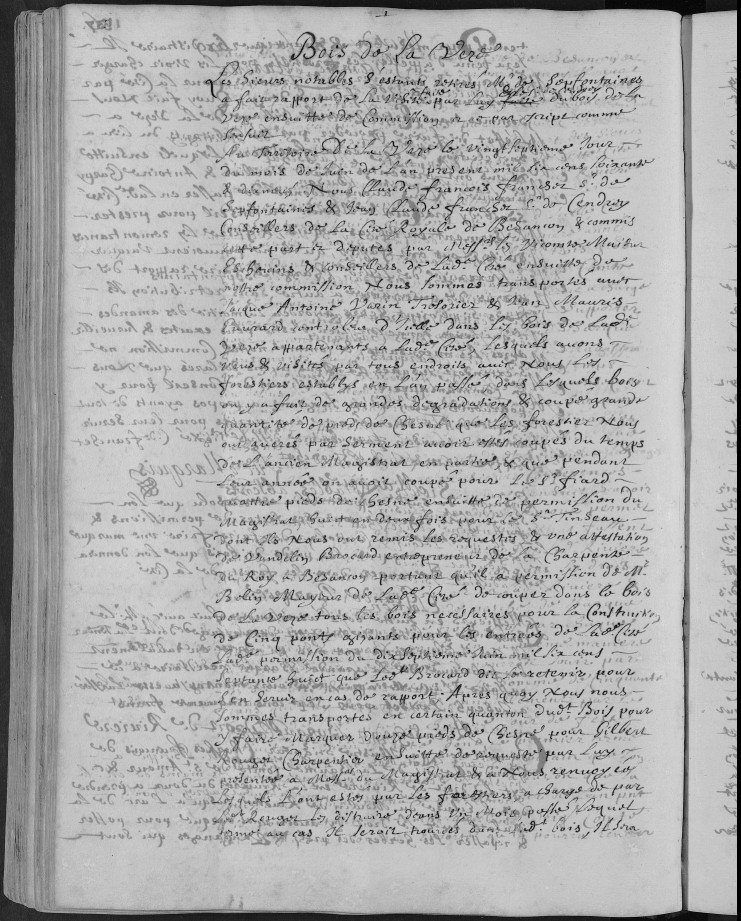 Bois de la Veze
Les Sieurs notables & estantz retirés Mr de Sepfontaines
a fait rapport de la Visite faite par luy du bois de la
Veze ensuitte de Commission par script comme
sensuit
Au Territoire De la Veze le vingtseptieme Jour
du mois de Juin de L'an present mil six cens soixante
& dixneuf Nous Claude francois franchet Sr de
Sepfontaines & Jean Claude franchet Sr de Cendrey
Conseillers de la Cité Royale de Besançon & commis
cette part & deputes par Messrs les Vicomte Maieur
Eschevins & Conseillers de Lade Cité ensuitte de
nostre commission Nous sommes transportes avec
Jacque Antoine Varin Tresorier & Jean Mauris
dans les bois de Lade
Veze appartenants a Lade Cité Lesquels avons
veus & visités par tous endroits avec Nous Les
forestiers establys en L'an passé dans Lesquels bois
on y a fait de grandes degradations & coupé grande
quantité de pieds de Chesne que Les forestier Nous
ont averés par serment avoir estés coupés du temps
De L'ancien Magistrat en partie, & que pendant
Leur année on avoit coupé pour Le Sr fiard
quattre pieds de chesne ensuitte de permission du
Magistrat huict en deux fois pour le Sr Tinseau
dont Ils Nous ont remis Les requestes & une attestation
de Vandelin Brocard entrepreneur de la Charpente
du Roy a Besançon portant qu'il a permission de Mr
Belin Mayeur de Lade Cité de couper dans le bois
de La Veze tous Les bois necessaires pour la Construction
de Cinq ponts pour les entrées de Lade Cité
Lade permission du dixseptieme Juin mil six cens
septante huict que Lodt Brocard dit retenir pour
s'en servir en cas de rapport Apres quoy Nous nous
sommes transportes en certain quanton dudt Bois pour
y faire Marquer Douze pieds de Chesne pour Gilbert
Rouget Charpentier ensuitte de requeste par Luy
presentée a Messrs du Magistrat & a Nous renvoyée
Lesquels L'ont estés par les forestiers a charge de par
Ledt Rouget Les distraire dans un Mois passé Lequel
terme au cas Il seroit trouvés dans Ledt bois, Il sera